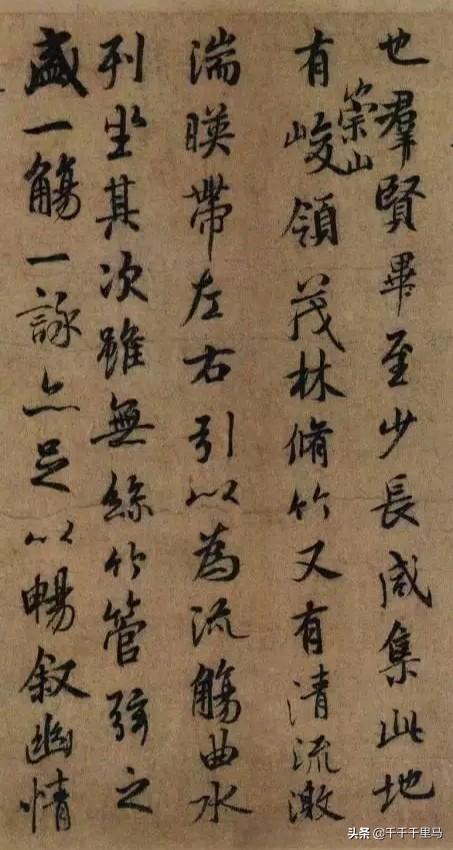 也羣賢畢至少長咸集此地
有崇山峻領茂林脩竹又有清流激
湍暎帶左右引以為流觴曲水
列坐其次雖無絲竹管弦之
盛一觴一詠亦足以暢叙幽情
头条 @千千千里马